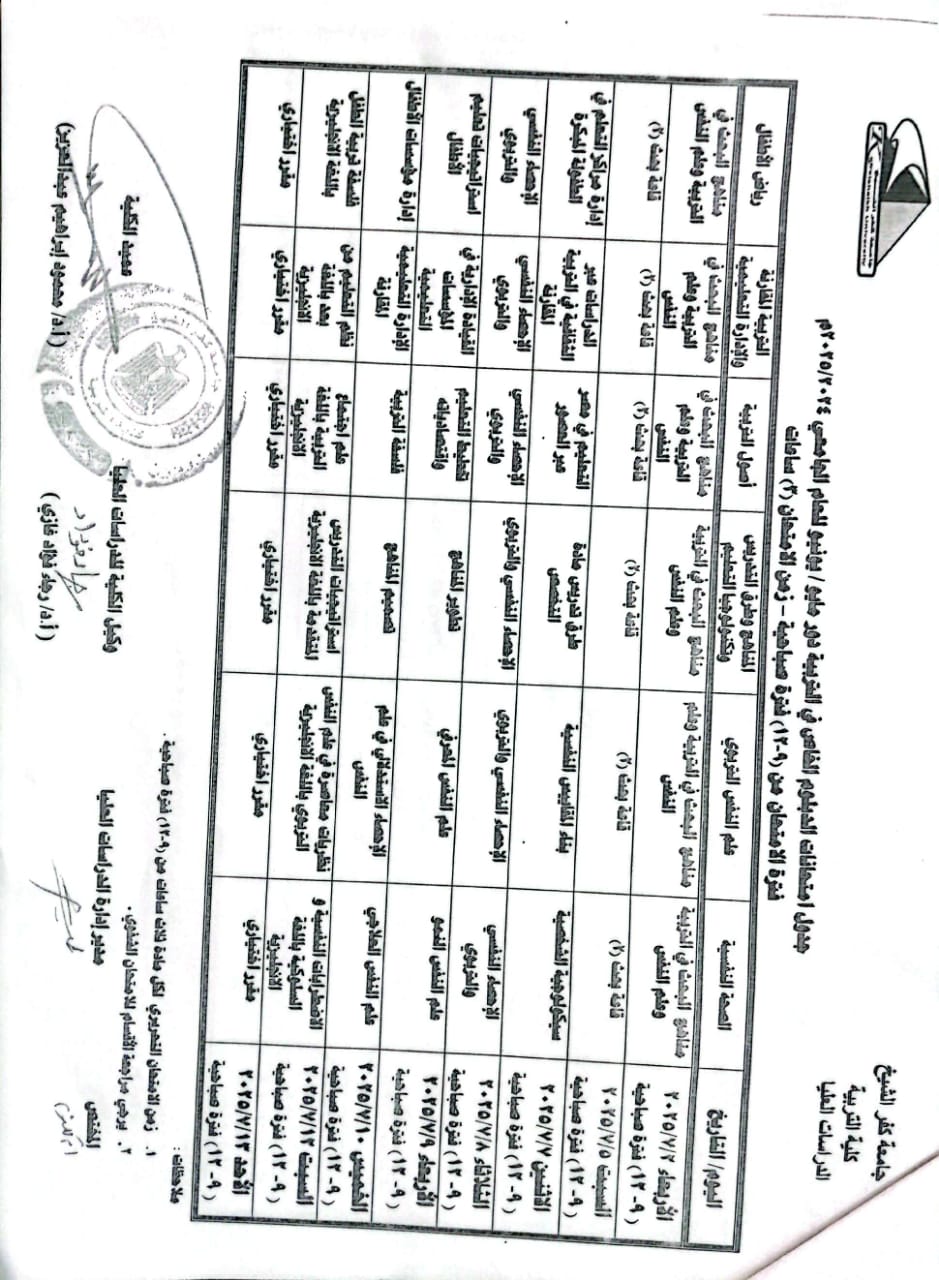 جامعة كفر الشيخ
كلية التربية
الدراسات العليا
جدول امتحانات الدبلوم الخاص في التربية دور مايو / يونيو للعام الجامعي ٢٠٢٥/٢٠٢٤م
فترة الامتحان من (٩-١٢) فترة صباحية – زمن الامتحان (٣) ساعات
اليوم/ التاريخ
الصحة النفسية
علم النفس التربوي
المناهج وطرق التدريس
وتكنولوجيا التعليم
أصول التربية
التربية المقارنة
والإدارة التعليمية
رياض الأطفال
الأربعاء ٢٠٢٥/٧/٢
(٩-١٢) فترة صباحية
مناهج البحث في التربية
وعلم النفس
مناهج البحث في التربية وعلم
النفس
مناهج البحث في التربية
وعلم النفس
مناهج البحث في
التربية وعلم
النفس
مناهج البحث في
التربية وعلم
النفس
مناهج البحث في
التربية وعلم النفس
السبت ٢٠٢٥/٧/٥
(٩-١٢) فترة صباحية
قاعة بحث (٢)
قاعة بحث (٢)
قاعة بحث (٢)
قاعة بحث (٢)
قاعة بحث (٢)
قاعة بحث (٢)
الاثنين ٢٠٢٥/٧/٧
(٩-١٢) فترة صباحية
سيكولوجية الشخصية
بناء المقاييس النفسية
طرق تدريس مادة
التخصص
التعليم في مصر
عبر العصور
الدراسات عبر
الثقافية في التربية
المقارنة
إدارة مراكز التعلم في
الطفولة المبكرة
الثلاثاء ٢٠٢٥/٧/٨
(٩-١٢) فترة صباحية
الإحصاء النفسي
والتربوي
الإحصاء النفسي والتربوي
الإحصاء النفسي والتربوي
الإحصاء النفسي
والتربوي
الإحصاء النفسي
والتربوي
الإحصاء النفسي
والتربوي
الأربعاء ٢٠٢٥/٧/٩
(٩-١٢) فترة صباحية
علم النفس النمو
علم النفس المعرفي
تطوير المناهج
تخطيط التعليم
واقتصادياته
القيادة الإدارية في
المؤسسات
التعليمية
استراتيجيات تعليم
الأطفال
الخميس ٢٠٢٥/٧/١٠
(٩-١٢) فترة صباحية
علم النفس العلاجي
الإحصاء الاستدلالي في علم
النفس
تصميم المناهج
فلسفة التربية
الإدارة التعليمية
المقارنة
إدارة مؤسسات الأطفال
السبت ٢٠٢٥/٧/١٢
(٩-١٢) فترة صباحية
الاضطرابات النفسية و
السلوكية باللغة
الانجليزية
نظريات معاصرة في علم النفس
التربوي باللغة الانجليزية
استراتيجيات التدريس
المتقدمة باللغة الانجليزية
علم اجتماع
التربية باللغة
الانجليزية
نظم التعليم من
بعد باللغة
الانجليزية
فلسفة تربية الطفل
باللغة الانجليزية
الأحد ٢٠٢٥/٧/١٣
(٩-١٢) فترة صباحية
مقرر اختياري
مقرر اختياري
مقرر اختياري
مقرر اختياري
مقرر اختياري
مقرر اختياري
ملاحظات :
١. زمن الامتحان التحريري لكل مادة ثلاث ساعات من (٩-١٢) فترة صباحية .
٢. يرجي مراجعة الأقسام للامتحان الشفوي .
المختص
مدير إدارة الدراسات العليا
وكيل الكلية للدراسات العليا
(أ.د/ رجاء فؤاد غازي)
عميد الكلية
(أ.د/ محمود إبراهيم عبدالعزيز)